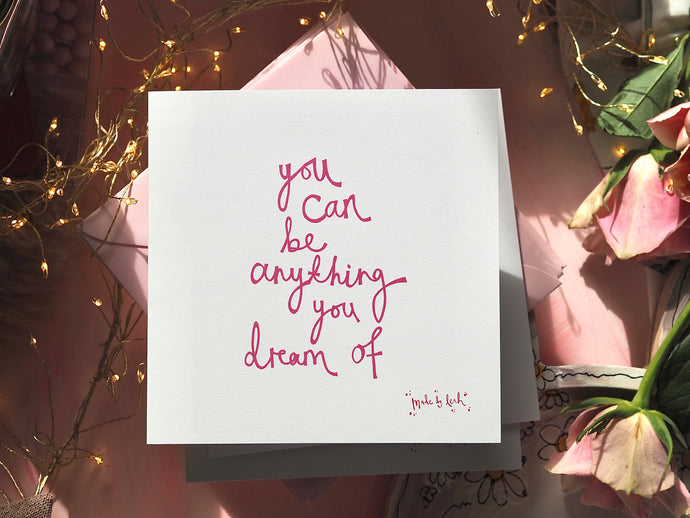 you
can
be
anything
you
dream of
Made by Leah